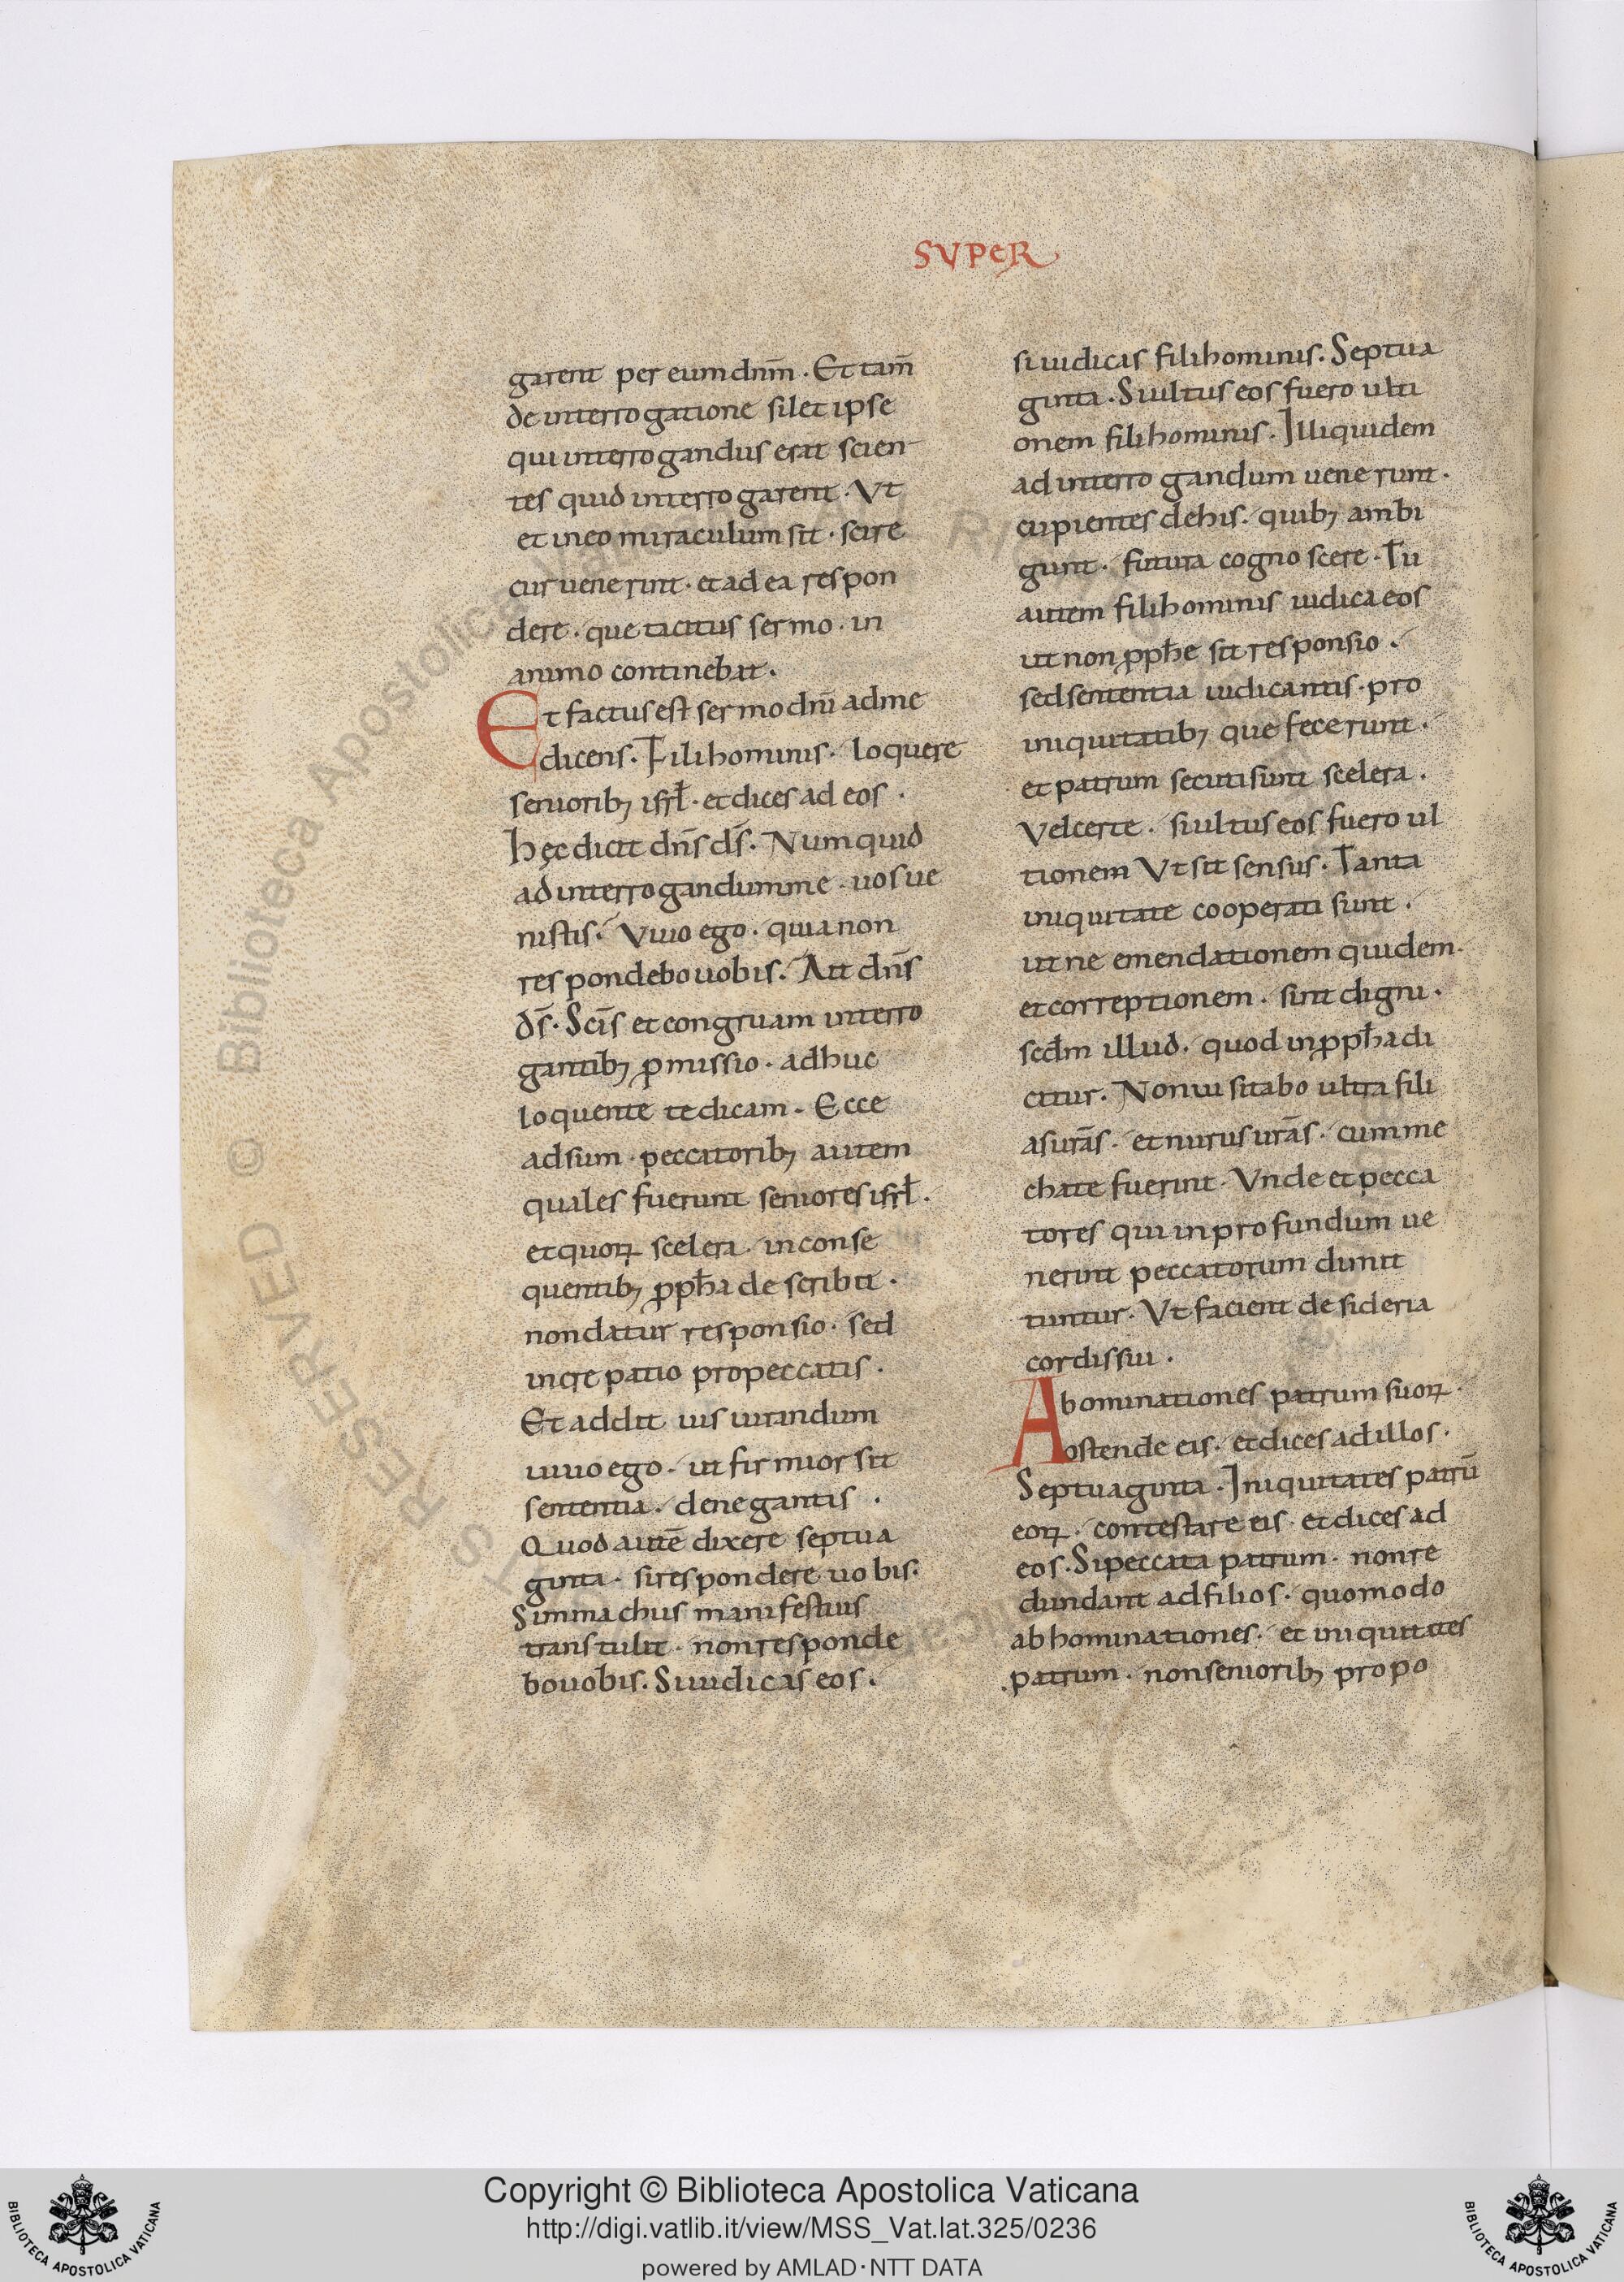 SVPER
garent per eum dnm̄. Et tam̄
de interrogatione silet ipse
qui interrogandus erat scien
tes quid interrogarent. Vt
et in eo miraculum sit. scire
cur venerint. et ad ea respon
dere. que tacitus sermo. in
animo continebat.
Et factus est sermo dn̄i ad me
dicens. Fili hominis. loquere
seniorib; isrl̄. et dices ad eos.
Hęc dicit dn̄s ds̄. Numquid
ad interrogandum me. uos ue
nistis. Viuo ego. quia non
respondebo uobis. Ait dn̄s
ds̄. Scis̄ et congruam interro
gantib; p̱missio. adhuc
loquente te dicam. Ecce
adsum. peccatorib; autem
quales fuerunt seniores isrl̄.
et quoꝝ scelera. in conse
quentib; ꝓph̄a describit.
non datur responsio. sed
increpatio pro peccatis.
Et addit ius iurandum
uiuo ego. ut firmior sit
sententia. denegantis.
Quod autē dixere septua
ginta. si respondere uobis.
Simmachus manifestius
transtulit. non responde
bo uobis. Si iudicas eos.
si iudicas fili hominis. Septua
ginta. Si ultus eos fuero ulti
onem fili hominis. Illi quidem
ad interrogandum uenerunt.
cupientes de his. quib; ambi
gunt. futura cognoscere. Tu
autem fili hominis iudica eos
ut non ꝓph̄e sit responsio.
sed sententia iudicantis. pro
iniquitatib; que fecerunt.
et patrum secuti sunt scelera.
Vel certe. si ultus eos fuero ul
tionem Vt sit sensus. Tanta
iniquitate cooperati sunt.
ut ne emendationem quidem.
et correptionem. sint digni.
scd̄m illud. quod in ꝓph̄a di
citur. Non uisitabo ultra fili
as urās. et nurus urās. cum me
chate fuerint. Vnde et pecca
tores qui in profundum ue
nerint peccatorum dimit
tuntur. Vt facient desideria
cordis sui.
Abominationes patrum suoꝝ.
ostende eis. et dices ad illos.
Septuaginta. Iniquitates patrū
eoꝝ. contestare eis. et dices ad
eos. Si peccata patrum. non re
dundant ad filios. quomodo
abhominationes. et iniquitates
patrum. non seniorib; propo
Copyright © Biblioteca Apostolica Vaticana
http://digi.vatlib.it/view/MSS_Vat.lat.325/0236
powered by AMLAD·NTT DATA
BIBLIOTECA APOSTOLICA VATICANA
BIBLIOTECA APOSTOLICA VATICANA